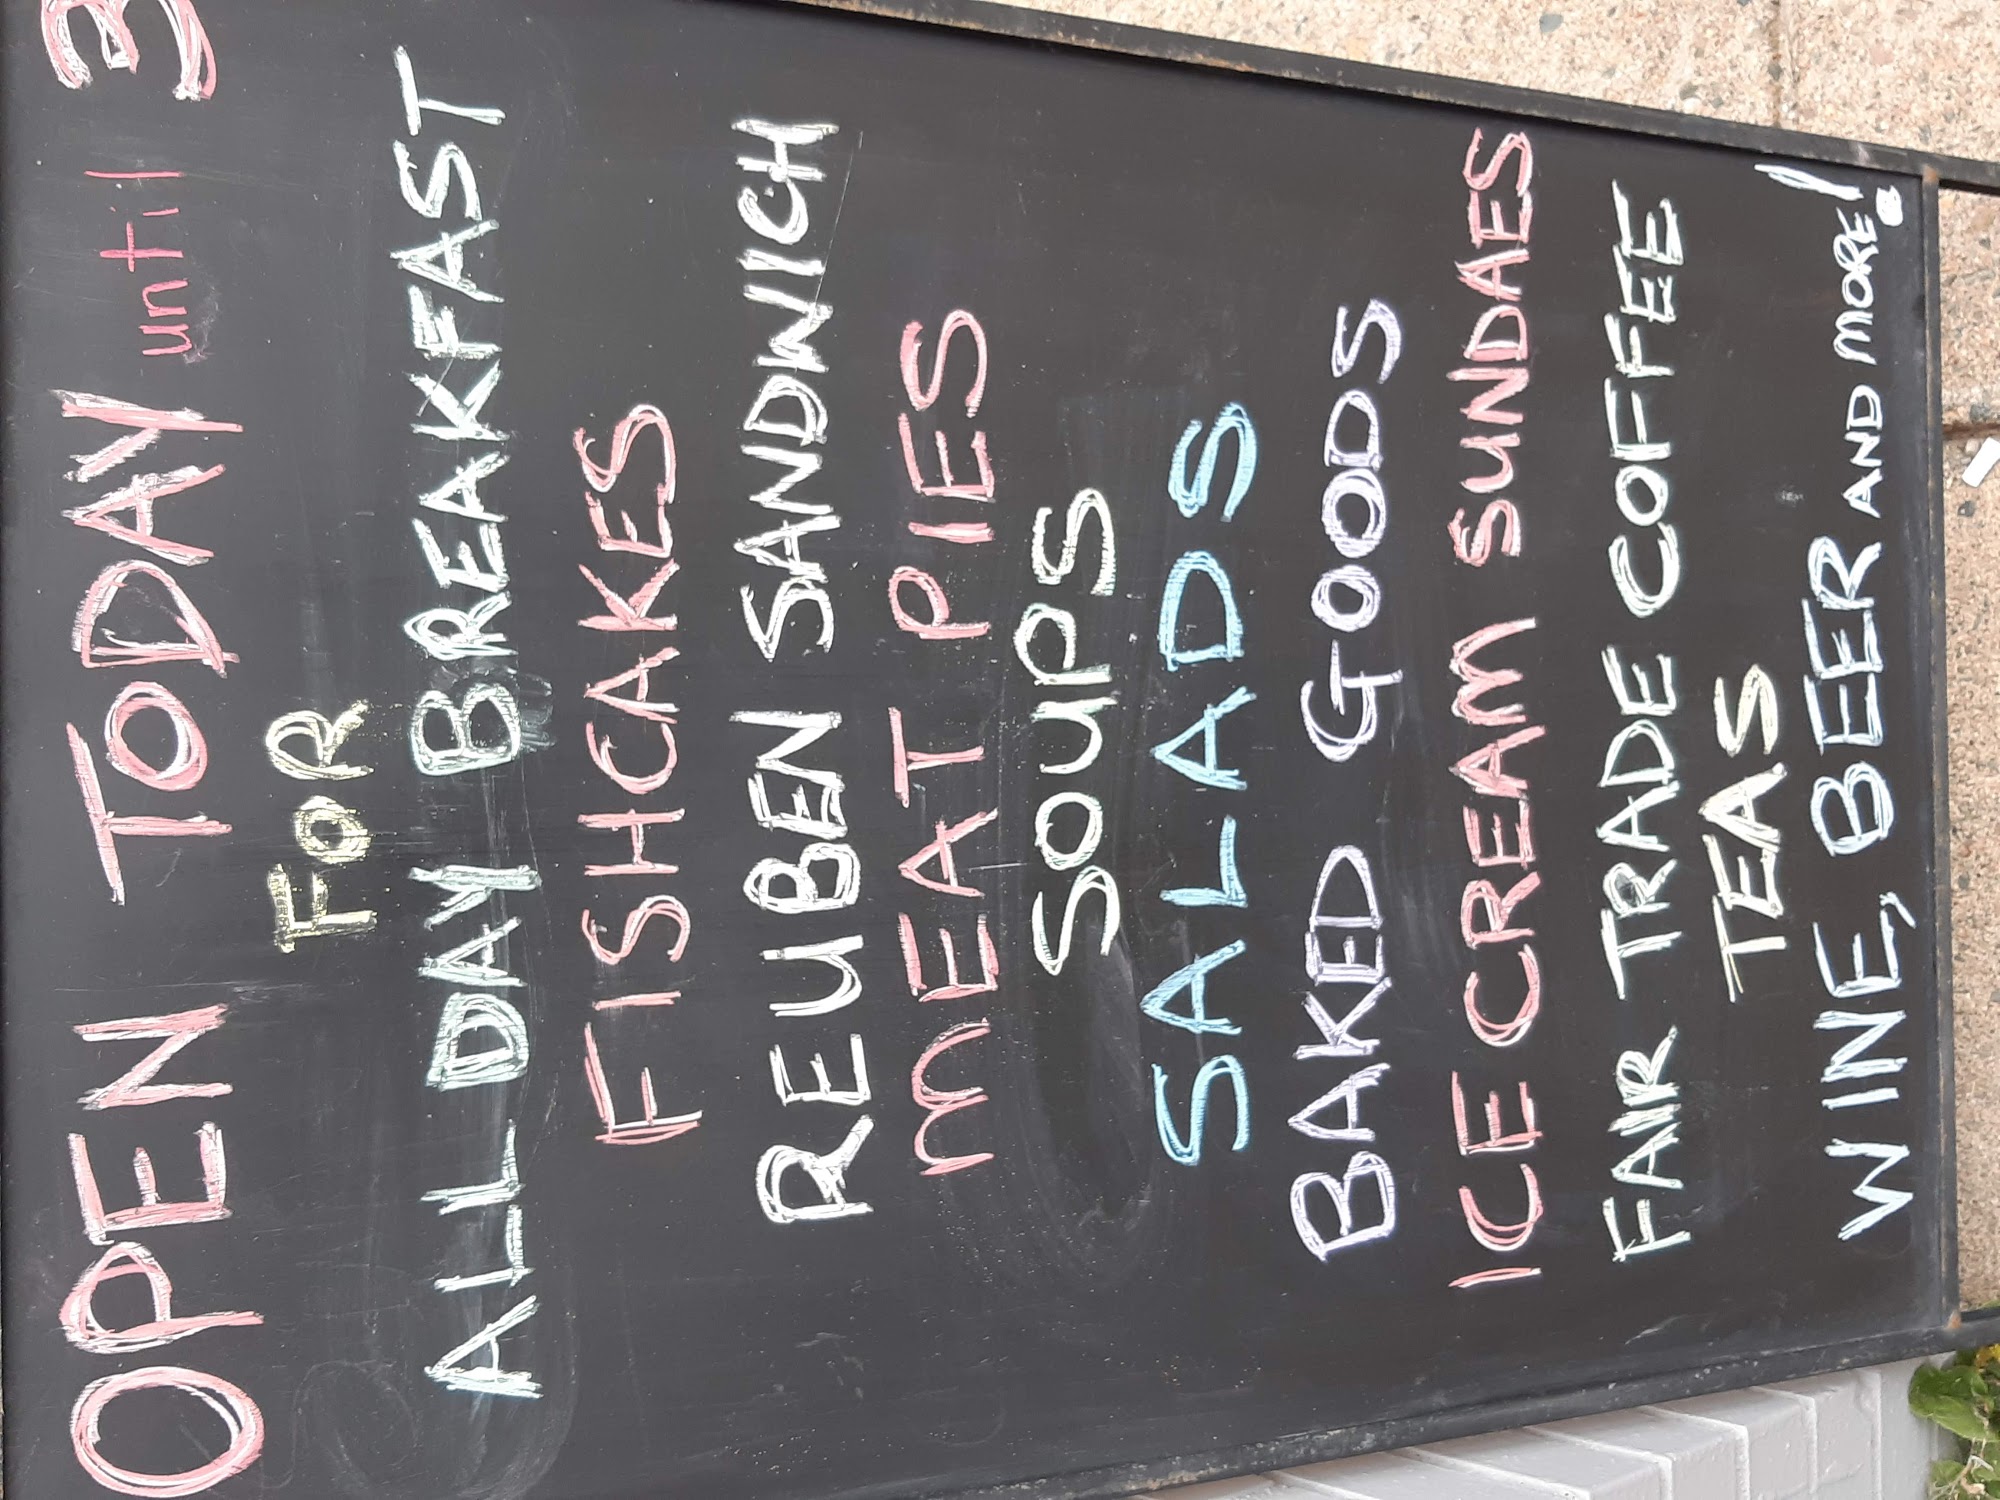 OPEN TODAY until 3
FOR
ALL DAY BREAKFAST
FISHCAKES
REUBEN SANDWICH
MEAT PIES
SOUPS
SALADS
BAKED GOODS
ICE CREAM SUNDAES
FAIR TRADE COFFEE
TEAS
WINE, BEER AND MORE!